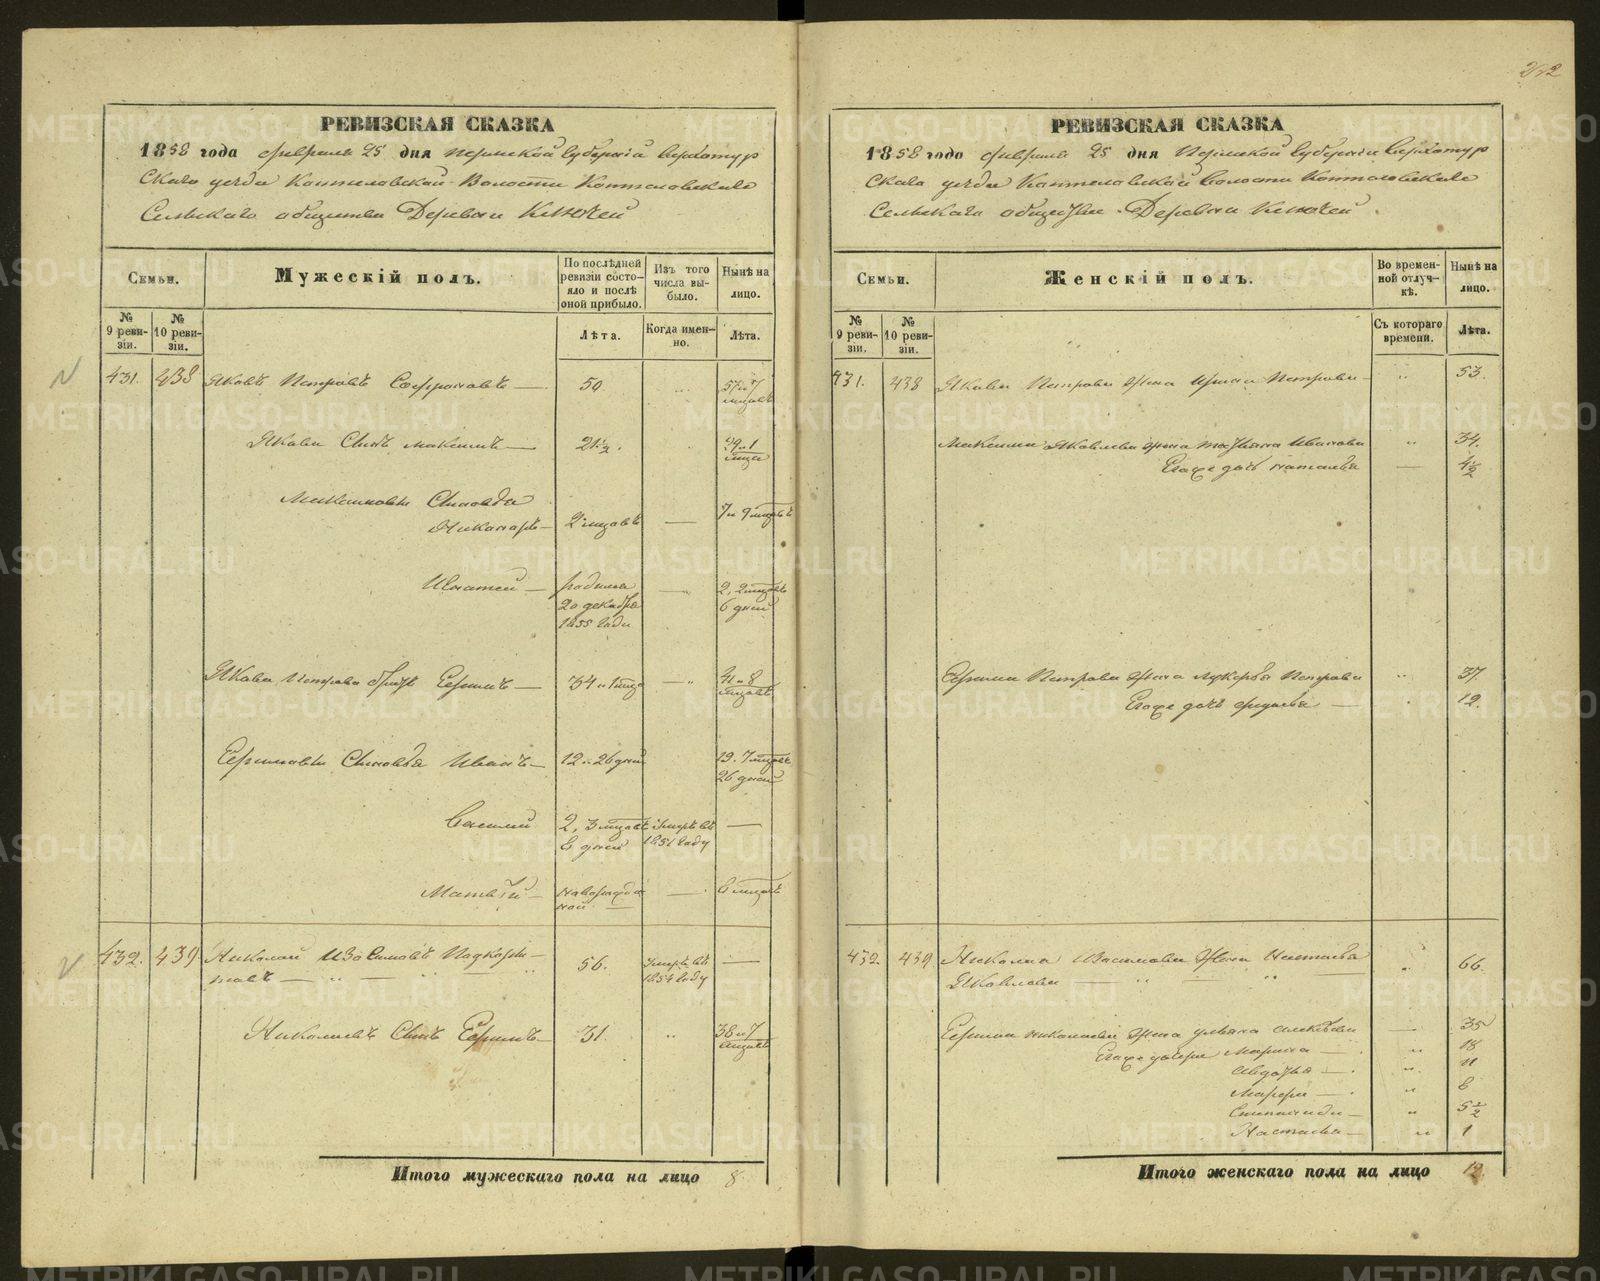 212
РЕВИЗСКАЯ СКАЗКА
1858 года февраля 25 дня Пермской Губернiи Верхотур
скаго уезда Коптеловской Волости Коптеловскаго
Сельскаго общества Деревни Ключей
Семьи.
Мужескій полъ.
По послѣдней ревизіи состояло и послѣ оной прибыло.
Изъ того числа выбыло.
Нынѣ на лицо.
№ 9 ревизіи.
№ 10 ревизіи.
Лѣта.
Когда именно.
Лѣта.
431. 438 Яковъ Петровъ Софроновъ — 50. 57 и 7 мцовъ
Якова Сынъ Максимъ — 21½. 29 и 1 мца
Максимовы Сыновья
Никаноръ — 2 мцовъ — 7 и 9 мцовъ
Игнатей — родился 20 декабря 1855 года — 2, 2 мцовъ 6 дней
Якова Петрова братъ Ефимъ — 34 и 1 мца — 41 и 8 мцовъ
Ефимовы Сыновья Иванъ — 12 и 26 дней 19. 7 мцовъ 26 дней
Василий 2, 3 мцовъ 8 дней умре въ 1851 году —
Матвѣй — новорожденной — 6 мцовъ
432. 439 Николай Изосимовъ Подкорытовъ — 56. умре въ 1854 году —
Николаевъ Сынъ Ефимъ — 31. 38 и 7 мцовъ
Итого мужескаго пола на лицо 8
РЕВИЗСКАЯ СКАЗКА
1858 года февраля 25 дня Пермской Губернiи Верхотур
скаго уезда Коптеловской Волости Коптеловскаго
Сельскаго общества Деревни Ключей
Семьи.
Женскій полъ.
Во временной отлучкѣ.
Нынѣ на лицо.
№ 9 ревизіи.
№ 10 ревизіи.
Съ котораго времени.
Лѣта.
431. 438 Якова Петрова жена Ирина Петрова — 53.
Максима Яковлева жена Татьяна Иванова 34.
Егоже дочь Наталья — 4½
Ефима Петрова жена Лукерья Петрова 37.
Егоже дочь Федосья — 12.
432. 439 Николая Изосимова Жена Наталья
Яковлева — 66.
Ефима Николаева жена Ульяна Алексѣева — 35
Егоже дочери Марина — 18
Авдотья — 11
Марфа — 8
Степанида — 5½
Настасья — 1
Итого женскаго пола на лицо 12.
METRIKI.GASO-URAL.RU